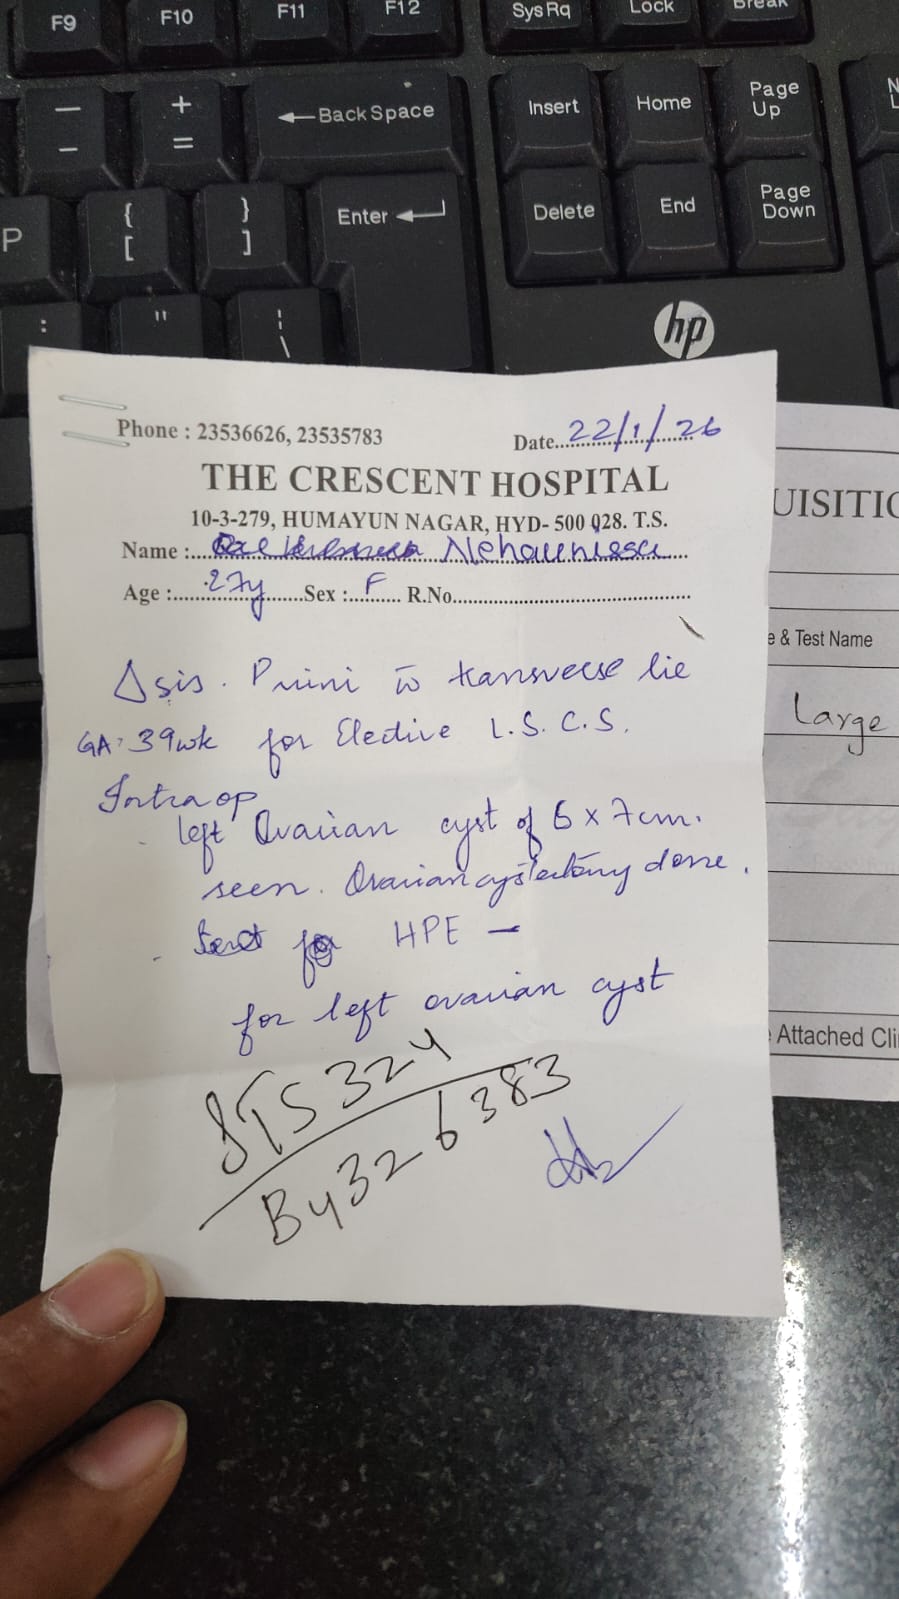 F9 F10 F11 F12 SysRq Lock Break
— + ←BackSpace Insert Home Page Up
- =
P { } Enter Delete End Page Down
[ ]
: " ¦
\
hp
Phone : 23536626, 23535783 Date 22/1/26
THE CRESCENT HOSPITAL
10-3-279, HUMAYUN NAGAR, HYD- 500 028. T.S.
Name :
Age : 27y Sex : F R.No.
Δsis. Primi c̄ transverse lie
GA: 39wk for Elective L.S.C.S.
Intraop
- left Ovarian cyst of 6 x 7cm.
seen. Ovarian cystectomy done.
- Sent for HPE —
for left ovarian cyst
STS324
By326383
UISITIO
e & Test Name
Large
Attached Cli